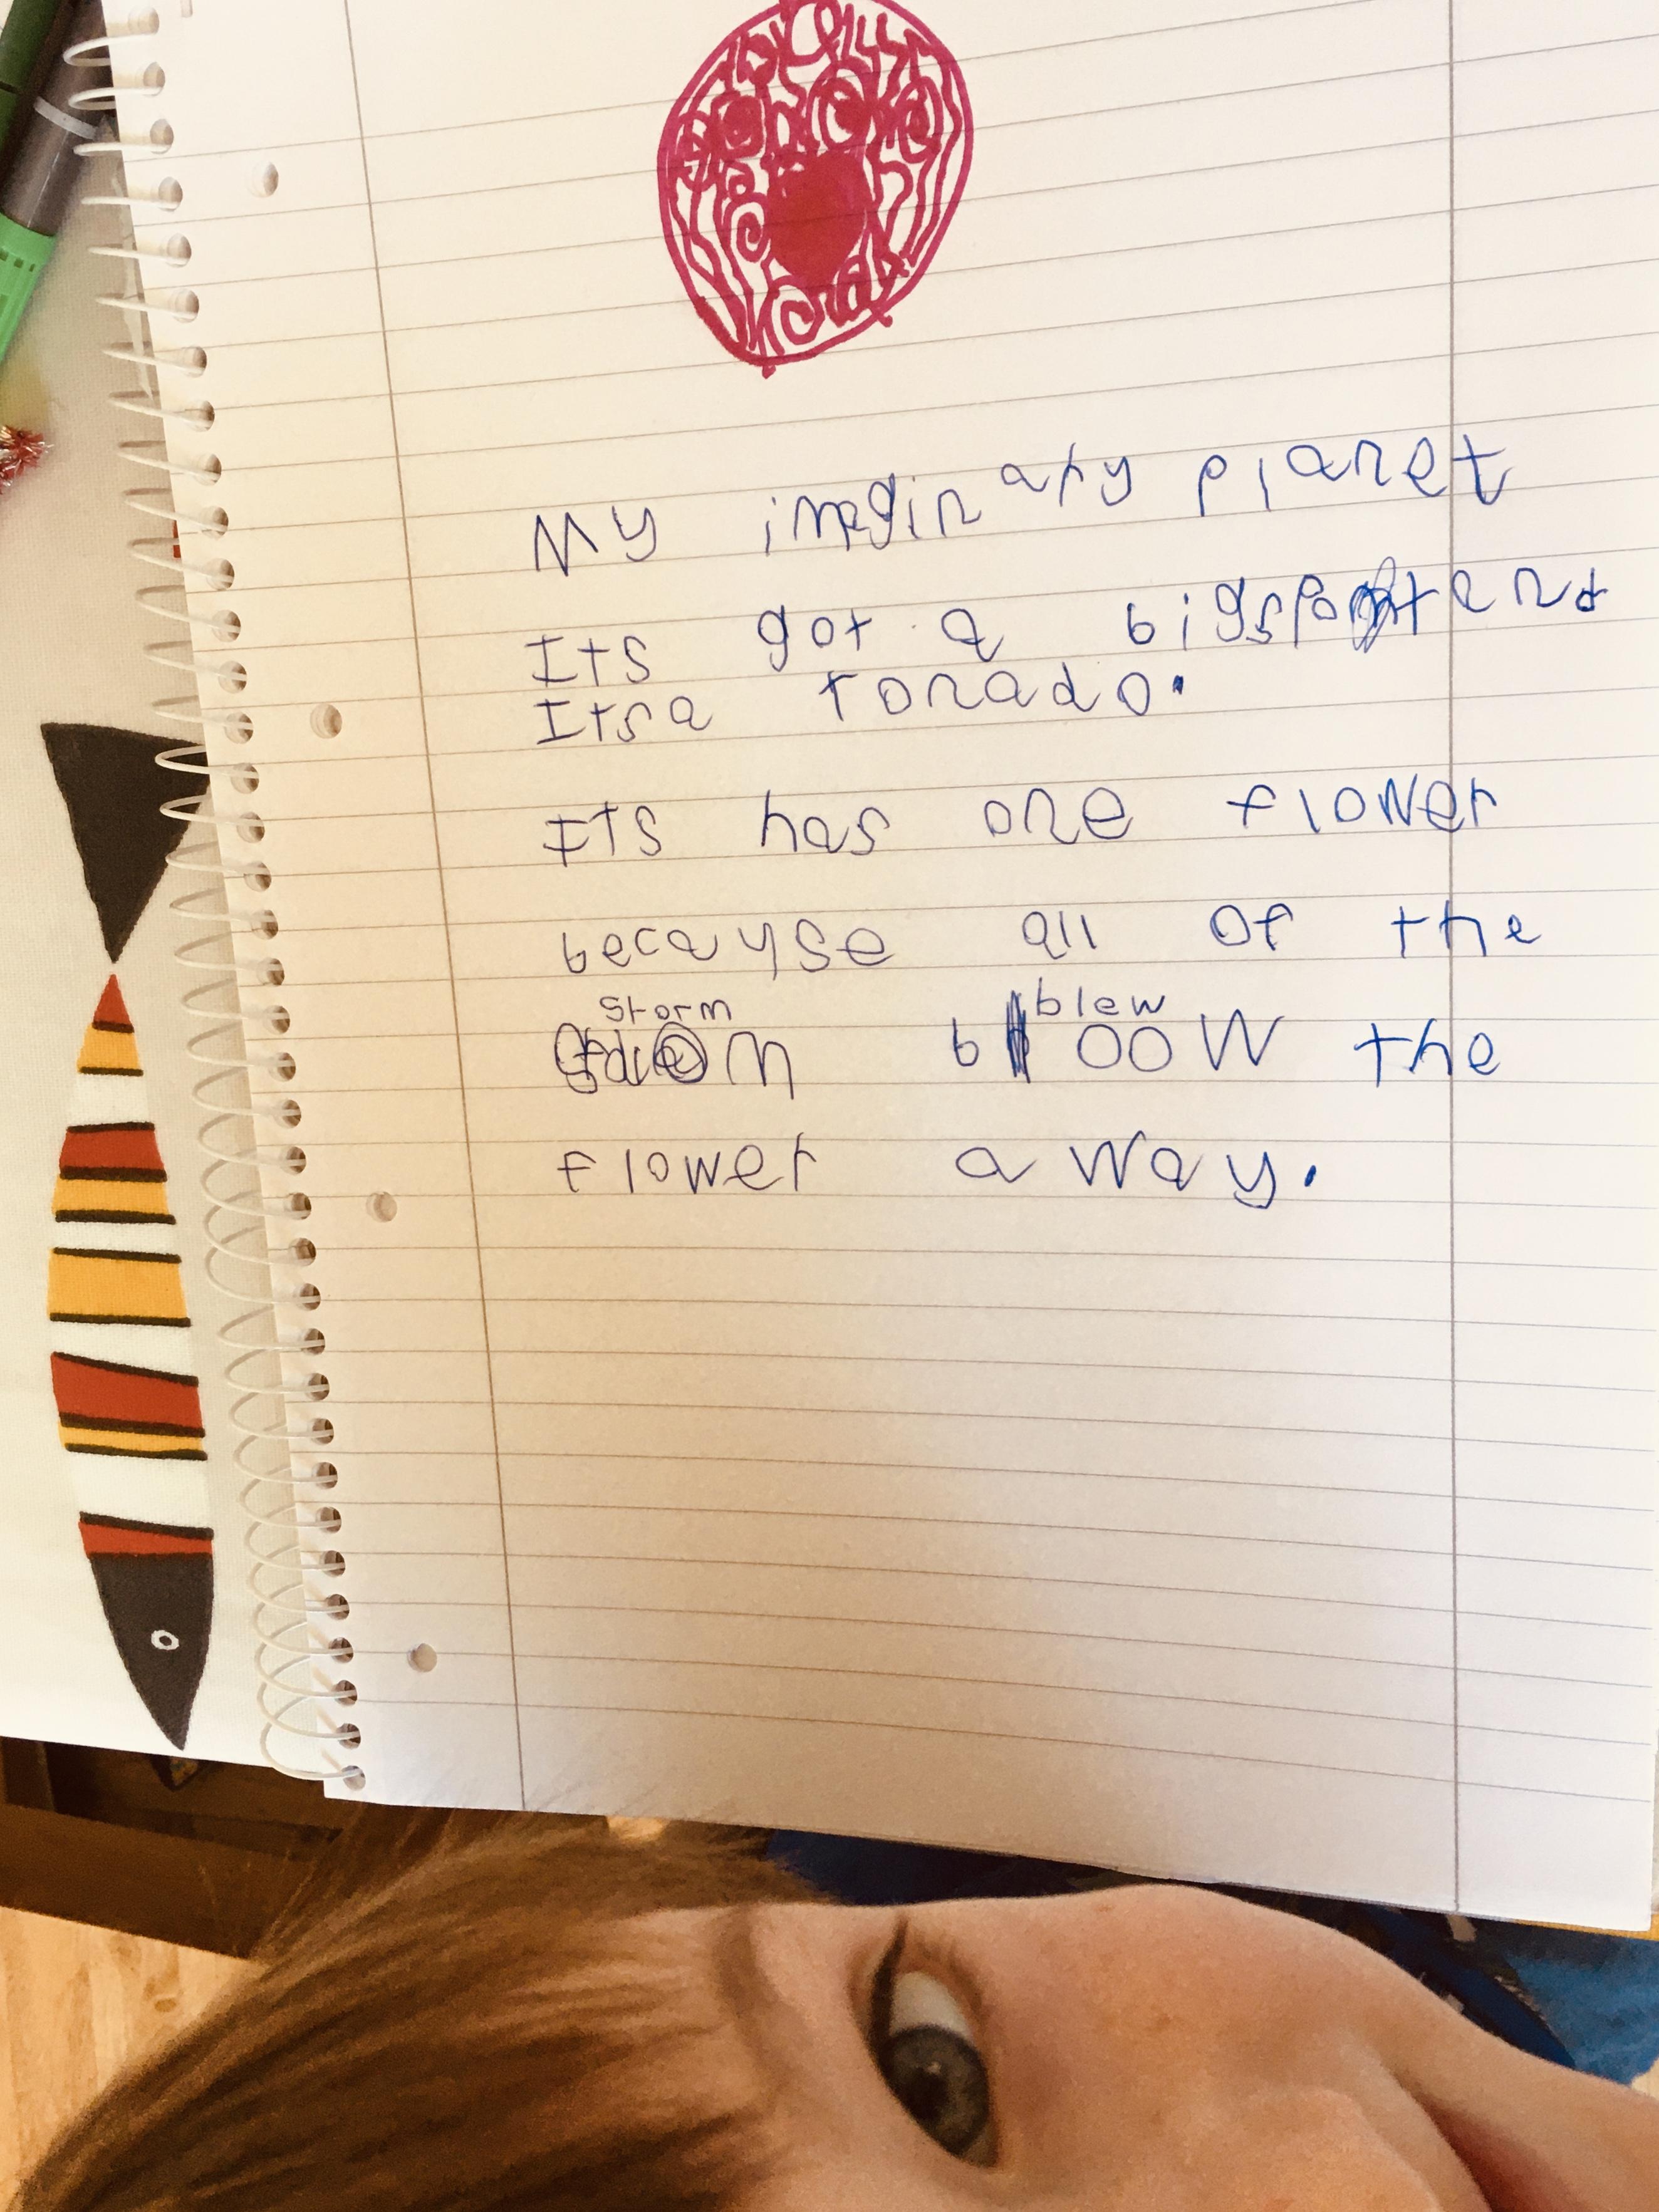 My imaginary planet
Its got a big spot and
Itsa tonado.
Its has one flower
because all of the
storm blew
b oow the
flower away.